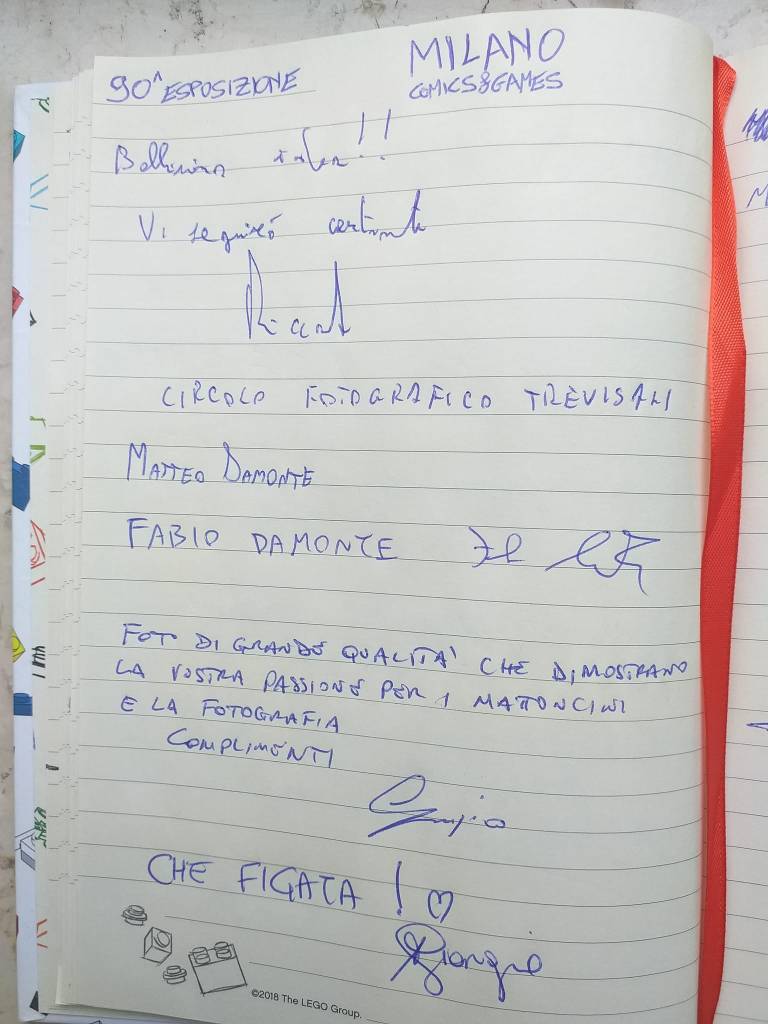 90^ ESPOSIZIONE
MILANO
COMICS&GAMES
Bellissima idea!!
Vi seguirò certamente
CIRCOLO FOTOGRAFICO TREVISANI
MATTEO DAMONTE
FABIO DAMONTE
FOTO DI GRANDE QUALITA' CHE DIMOSTRANO
LA VOSTRA PASSIONE PER I MATTONCINI
E LA FOTOGRAFIA
COMPLIMENTI
CHE FIGATA ! ♡
Giorgio
©2018 The LEGO Group.